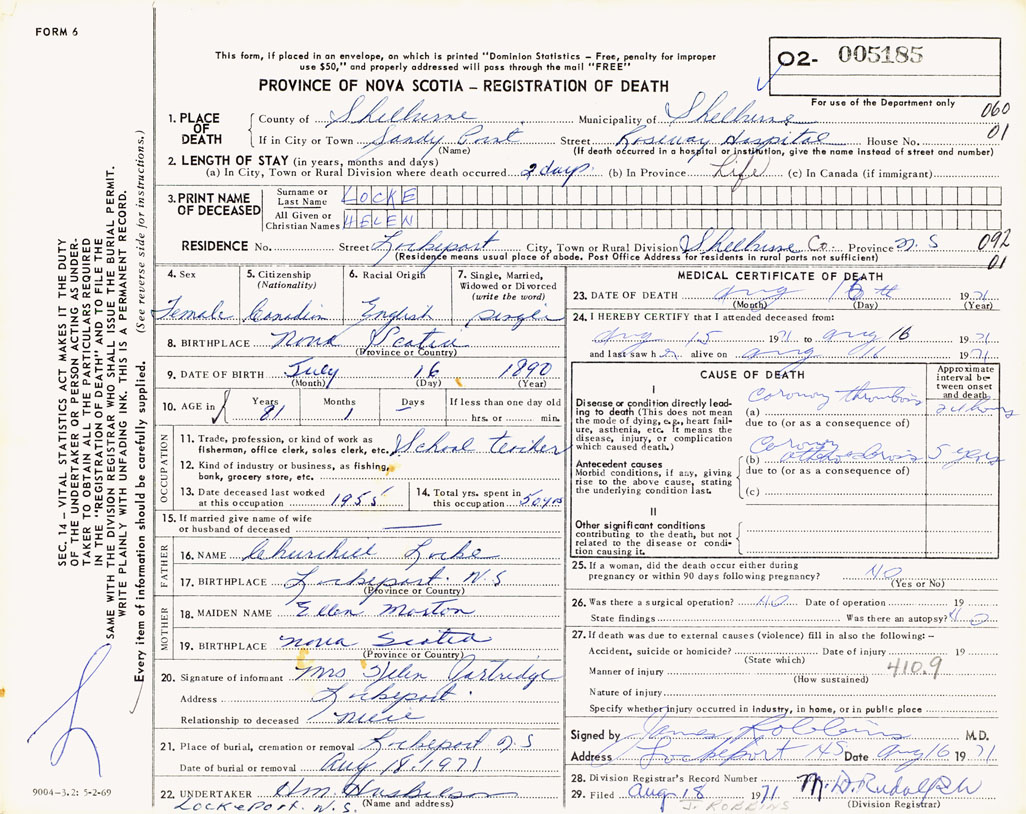 FORM 6
This form, if placed in an envelope, on which is printed "Dominion Statistics - Free, penalty for improper
use $50," and properly addressed will pass through the mail "FREE"
PROVINCE OF NOVA SCOTIA – REGISTRATION OF DEATH
O2- 005185
For use of the Department only
060
01
1. PLACE OF DEATH
County of Shelburne Municipality of Shelburne
If in City or Town Sandy Point Street Roseway Hospital House No.
(Name) (If death occurred in a hospital or institution, give the name instead of street and number)
2. LENGTH OF STAY (in years, months and days)
(a) In City, Town or Rural Division where death occurred 2 days. (b) In Province Life (c) In Canada (if immigrant)
3. PRINT NAME OF DECEASED
Surname or Last Name LOCKE
All Given or Christian Names HELEN
RESIDENCE No. Street Lockeport City, Town or Rural Division Shelburne Co. Province N. S
092
01
(Residence means usual place of abode. Post Office Address for residents in rural parts not sufficient)
4. Sex Female
5. Citizenship (Nationality) Canadian
6. Racial Origin English
7. Single, Married, Widowed or Divorced (write the word) Single
8. BIRTHPLACE Nova Scotia
(Province or Country)
9. DATE OF BIRTH July 16 1890
(Month) (Day) (Year)
10. AGE in Years 81 Months 1 Days — If less than one day old hrs. or min.
OCCUPATION
11. Trade, profession, or kind of work as fisherman, office clerk, sales clerk, etc. School teacher
12. Kind of industry or business, as fishing, bank, grocery store, etc.
13. Date deceased last worked at this occupation 1955
14. Total yrs. spent in this occupation 50 yrs
15. If married give name of wife or husband of deceased —
FATHER
16. NAME Churchill Locke
17. BIRTHPLACE Lockeport. N.S
(Province or Country)
MOTHER
18. MAIDEN NAME Ellen
19. BIRTHPLACE Nova Scotia
(Province or Country)
20. Signature of informant Mrs Helen Partridge
Address Lockeport
Relationship to deceased niece
21. Place of burial, cremation or removal Lockeport N S
Date of burial or removal Aug 18, 1971
22. UNDERTAKER
(Name and address)
LOCKEPORT. N.S.
MEDICAL CERTIFICATE OF DEATH
23. DATE OF DEATH Aug 16th 1971
(Month) (Day) (Year)
24. I HEREBY CERTIFY that I attended deceased from:
Aug 15 1971 to Aug 16 1971
and last saw her alive on Aug 16 1971
CAUSE OF DEATH
Approximate interval between onset and death
I
Disease or condition directly leading to death (This does not mean the mode of dying, e.g., heart failure, asthenia, etc. It means the disease, injury, or complication which caused death.)
(a) Coronary thrombosis
due to (or as a consequence of)
Antecedent causes
Morbid conditions, if any, giving rise to the above cause, stating the underlying condition last.
(b) Coronary 5 years
due to (or as a consequence of)
(c)
II
Other significant conditions contributing to the death, but not related to the disease or condition causing it.
25. If a woman, did the death occur either during pregnancy or within 90 days following pregnancy? NO
(Yes or No)
26. Was there a surgical operation? NO Date of operation 19
State findings Was there an autopsy? NO
27. If death was due to external causes (violence) fill in also the following: –
Accident, suicide or homicide? Date of injury 19
(State which)
410.9
Manner of injury
(How sustained)
Nature of injury
Specify whether injury occurred in industry, in home, or in public place
Signed by James Robbins M.D.
Address Lockeport NS Date Aug 16 1971
28. Division Registrar's Record Number
29. Filed Aug 18 1971 M. D. Rudolph
J. ROBBINS (Division Registrar)
SEC. 14 – VITAL STATISTICS ACT MAKES IT THE DUTY
OF THE UNDERTAKER OR PERSON ACTING AS UNDER-
TAKER TO OBTAIN ALL THE PARTICULARS REQUIRED
IN THE "REGISTRATION OF DEATH" AND TO FILE THE
SAME WITH THE DIVISION REGISTRAR WHO SHALL ISSUE THE BURIAL PERMIT.
WRITE PLAINLY WITH UNFADING INK. THIS IS A PERMANENT RECORD.
Every item of information should be carefully supplied. (See reverse side for instructions.)
9004-3.2: 5-2-69